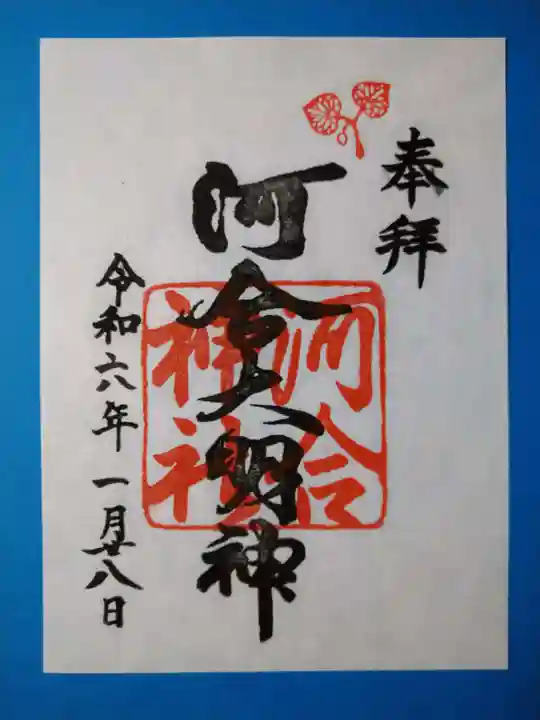 奉拝
河合大明神
河合神社
令和六年一月廿八日